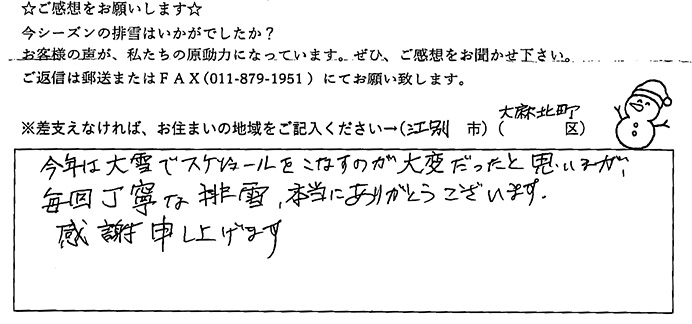 ☆ご感想をお願いします☆
今シーズンの排雪はいかがでしたか？
お客様の声が、私たちの原動力になっています。ぜひ、ご感想をお聞かせ下さい。
ご返信は郵送またはＦＡＸ（011-879-1951）にてお願い致します。
※差支えなければ、お住まいの地域をご記入ください→（江別 市）（大麻北町 区）
今年は大雪でスケジュールをこなすのが大変だったと思いますが、
毎回丁寧な排雪、本当にありがとうございます．
感謝申し上げます